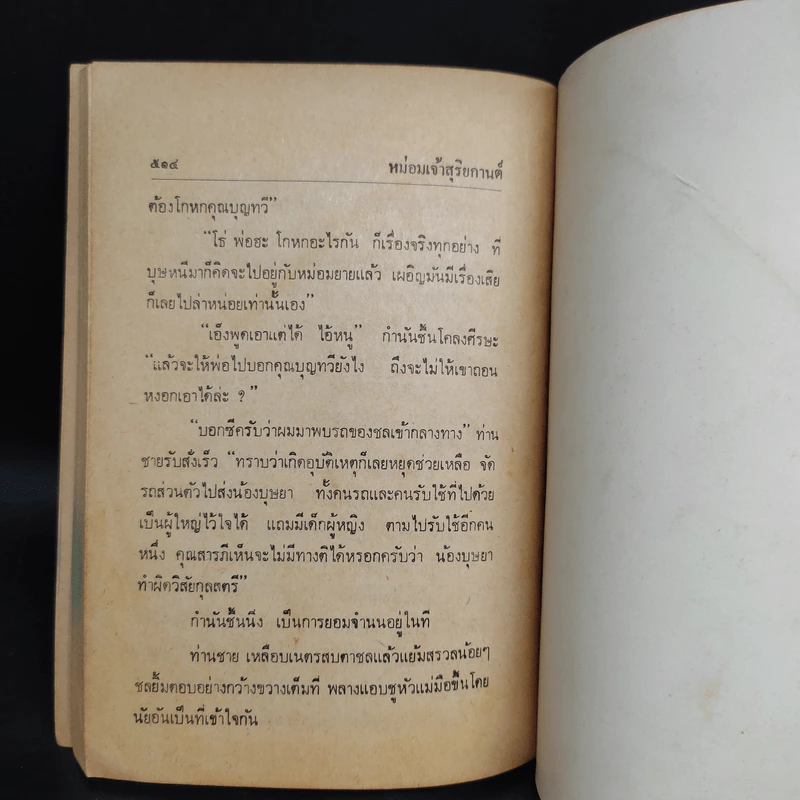 ๕๑๔ หม่อมเจ้าสุริยกานต์
ต้องโกหกคุณบุญทวี”
“โธ่ พ่อฮะ โกหกอะไรกัน ก็เรื่องจริงทุกอย่าง ที่
บุษหนีมาก็คิดจะไปอยู่กับหม่อมยายแล้ว เผอิญมันมีเรื่องเสีย
ก็เลยไปล่าหน่อยเท่านั้นเอง”
“เอ็งพูดเอาแต่ได้ ไอ้หนู” กำนันชื้นโคลงศีรษะ
“แล้วจะให้พ่อไปบอกคุณบุญทวียังไง ถึงจะไม่ให้เขาถอน
หงอกเอาได้ล่ะ ?”
“บอกซีครับว่าผมมาพบรถของชลเข้ากลางทาง” ท่าน
ชายรับสั่งเร็ว “ทราบว่าเกิดอุบัติเหตุก็เลยหยุดช่วยเหลือ จัด
รถส่วนตัวไปส่งน้องบุษยา ทั้งคนรถและคนรับใช้ที่ไปด้วย
เป็นผู้ใหญ่ไว้ใจได้ แถมมีเด็กผู้หญิง ตามไปรับใช้อีกคน
หนึ่ง คุณสารภีเห็นจะไม่มีทางติได้หรอกครับว่า น้องบุษยา
ทำผิดวิสัยกุลสตรี”
กำนันชื้นนิ่ง เป็นการยอมจำนนอยู่ในที
ท่านชาย เหลือบเนตรสบตาชลแล้วแย้มสรวลน้อยๆ
ชลยิ้มตอบอย่างกว้างขวางเต็มที พลางแอบชูหัวแม่มือขึ้นโดย
นัยอันเป็นที่เข้าใจกัน